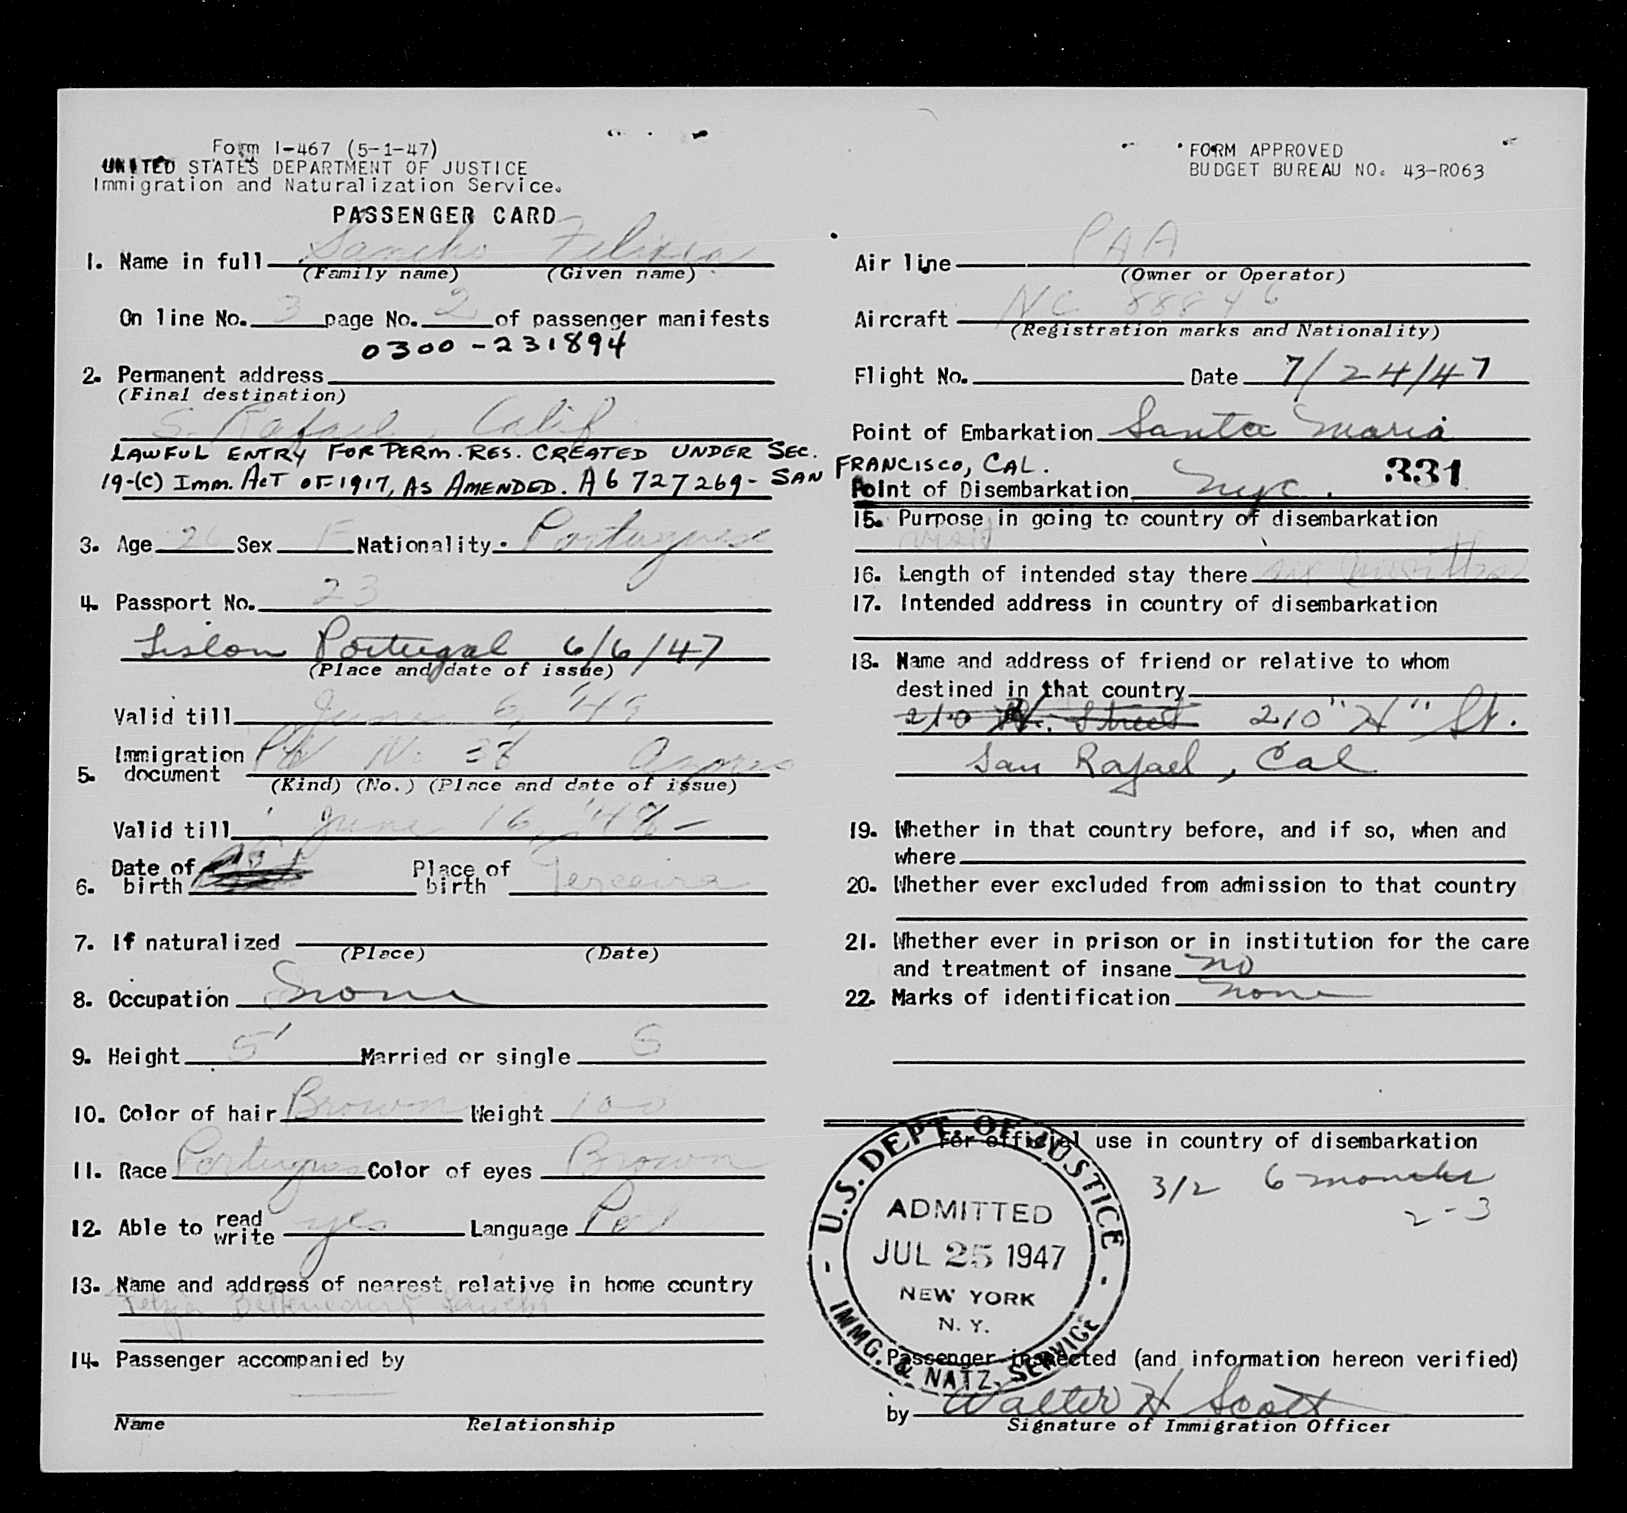 Form I-467 (5-1-47)
UNITED STATES DEPARTMENT OF JUSTICE
Immigration and Naturalization Service.
PASSENGER CARD
FORM APPROVED
BUDGET BUREAU NO. 43-R063
1. Name in full Sancho
(Family name) (Given name)
On line No. 3 page No. 2 of passenger manifests
0300-231894
2. Permanent address
(Final destination)
S. Rafael, Calif
LAWFUL ENTRY FOR PERM. RES. CREATED UNDER SEC.
19-(C) IMM. ACT OF 1917, AS AMENDED. A6 727269- SAN FRANCISCO, CAL.
3. Age 26 Sex F Nationality Portuguese
4. Passport No. 23
Lisbon Portugal 6/6/47
(Place and date of issue)
Valid till June 6, '48
5. Immigration document PV No. 38 Azores
(Kind) (No.) (Place and date of issue)
Valid till June 16, '48-
6. Date of birth Place of birth Terceira
7. If naturalized
(Place) (Date)
8. Occupation None
9. Height 5' Married or single S
10. Color of hair Brown Weight 100
11. Race Portuguese Color of eyes Brown
12. Able to read write yes Language Por
13. Name and address of nearest relative in home country
14. Passenger accompanied by
Name Relationship
Air line PAA
(Owner or Operator)
Aircraft NC 88846
(Registration marks and Nationality)
Flight No. Date 7/24/47
Point of Embarkation Santa Maria
331
Point of Disembarkation NYC.
15. Purpose in going to country of disembarkation
visit
16. Length of intended stay there six months
17. Intended address in country of disembarkation
18. Name and address of friend or relative to whom
destined in that country
210 H. Street 210 "H" St.
San Rafael, Cal
19. Whether in that country before, and if so, when and
where
20. Whether ever excluded from admission to that country
21. Whether ever in prison or in institution for the care
and treatment of insane No
22. Marks of identification None
For official use in country of disembarkation
3/2 6 months
2-3
U.S. DEPT. OF JUSTICE
ADMITTED
JUL 25 1947
NEW YORK
N.Y.
IMMG. & NATZ. SERVICE
Passenger inspected (and information hereon verified)
by Walter H Scott
Signature of Immigration Officer